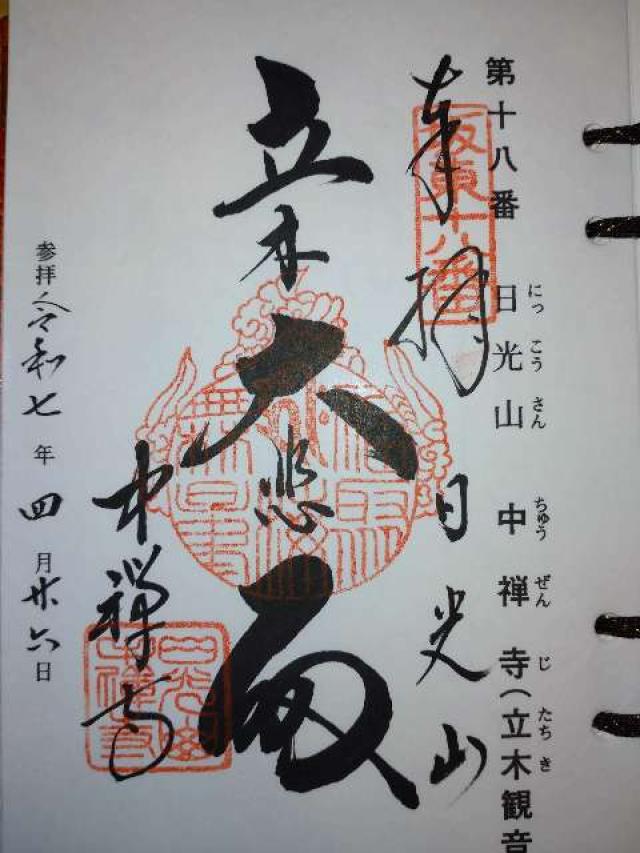 第十八番 日光山 中禅寺(立木観音
にっこうさん ちゅうぜんじ たちき
奉拝 日光山
坂東十八番
立木大悲殿
中禅寺
参拝 令和七年 四月廿六日